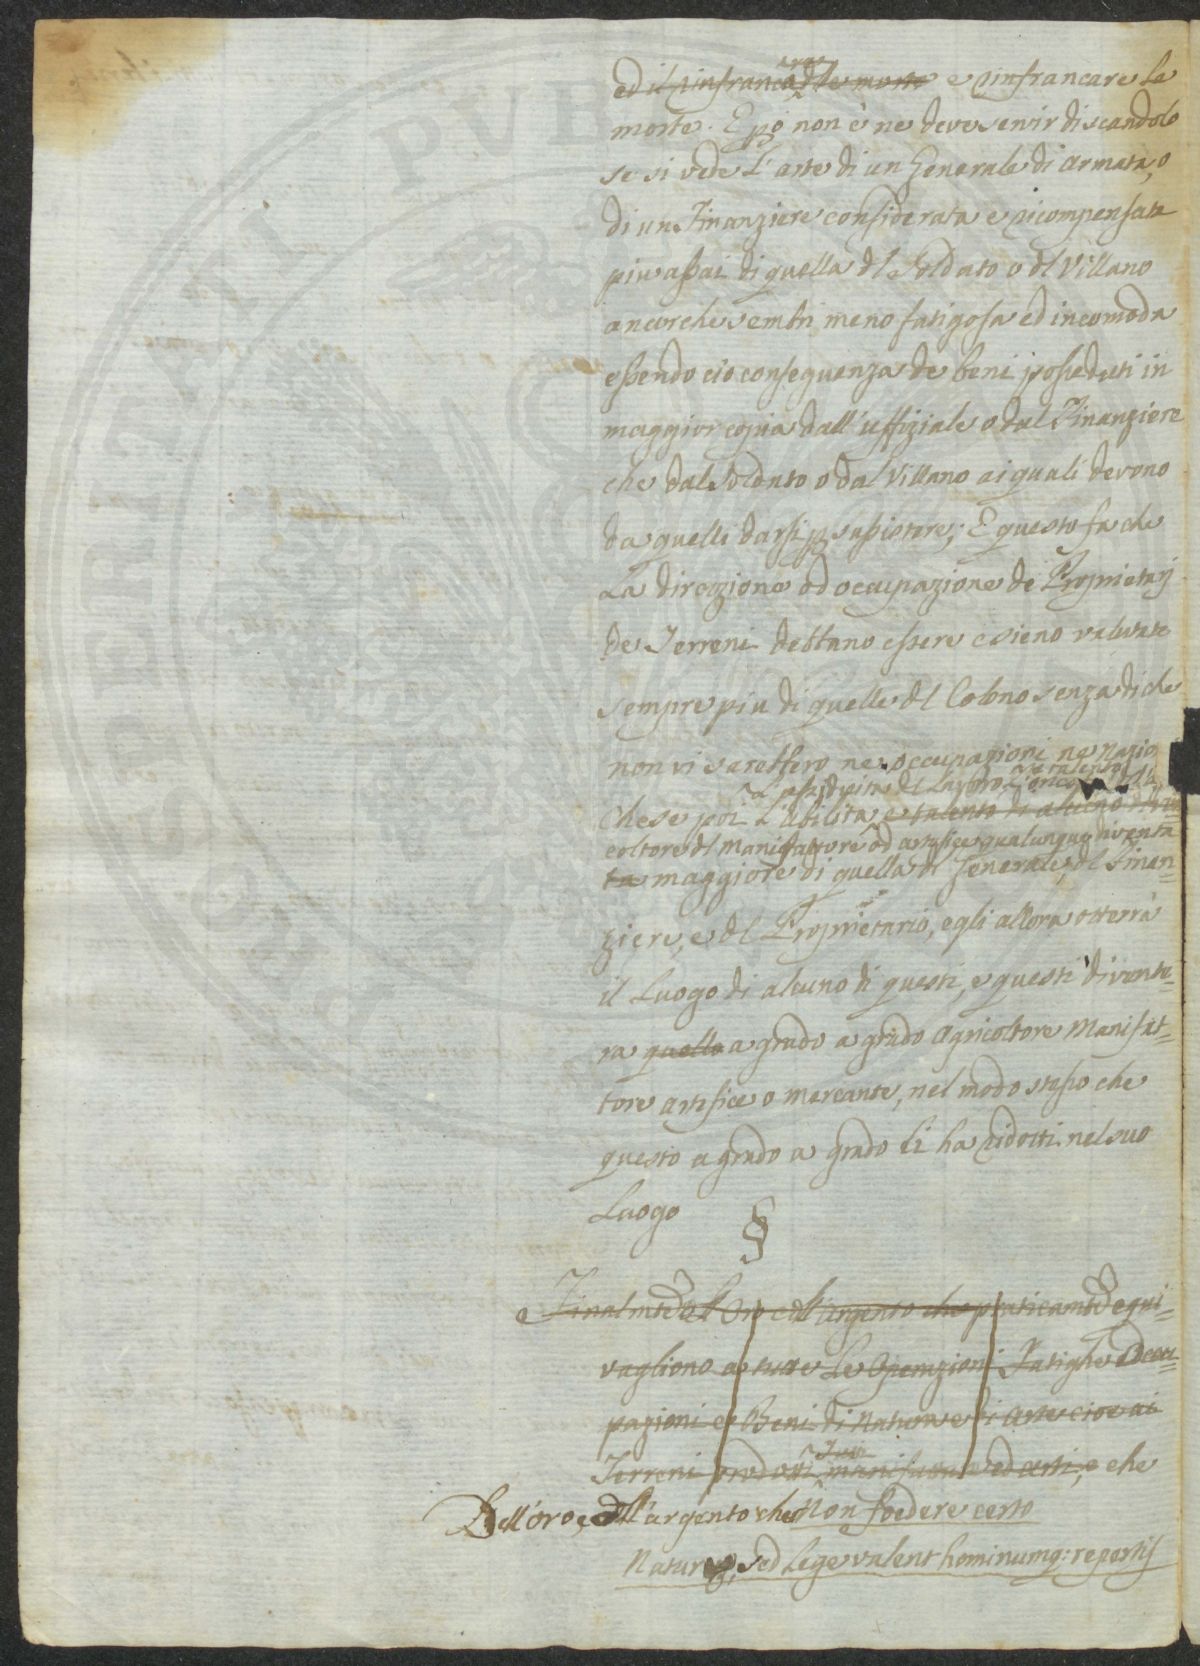 ed il rinfrancare le morte e rinfrancare le
morte. E pò non è ne deve servir di scandolo
se si vede L'arte di un Generale di armata, o
di un Finanziere considerata e ricompensata
piu assai di quella dl Soldato o dl Villano
ancorche sembri meno fatigosa ed incomoda
essendo cio consequenza de beni posseduti in
maggior copia dall'uffiziale o dal Finanziere
che dal Soldato o dal Villano ai quali devono
da quelli darsi p sussistere; E questo fa che
La direzione ed occupazione de Proprietarj
de Terreni debbano essere e sieno valutate
sempre piu di quelle dl Colono senza di che
non vi sarebbero ne occupazioni ne Nazio
che se poi L'abilita e talento di alcuno
coltore dl Manifattore od artefice qualunque diventa
ta maggiore di quella dl Generale, dl Finan=
ziere, e dl Proprietario, egli allora otterrà
il Luogo di alcuno di questi, e questi divente=
ra quello a grado a grado Agricoltore Manifat=
tore artefice o mercante, nel modo stesso che
questo a grado a grado li ha ridotti nel suo
Luogo
§
Finalmte dell'Oro e dll'argento che praticamte equi=
vagliono a tutte Le Operazioni Fatighe ed occu=
pazioni e Beni di Natura e di arte cioe ai
Terreni prodotti manifatture ed arti, e che
Dell'oro, e dll'argento che Non foedere certo
Naturae, sed Lege valent hominumq: repertis